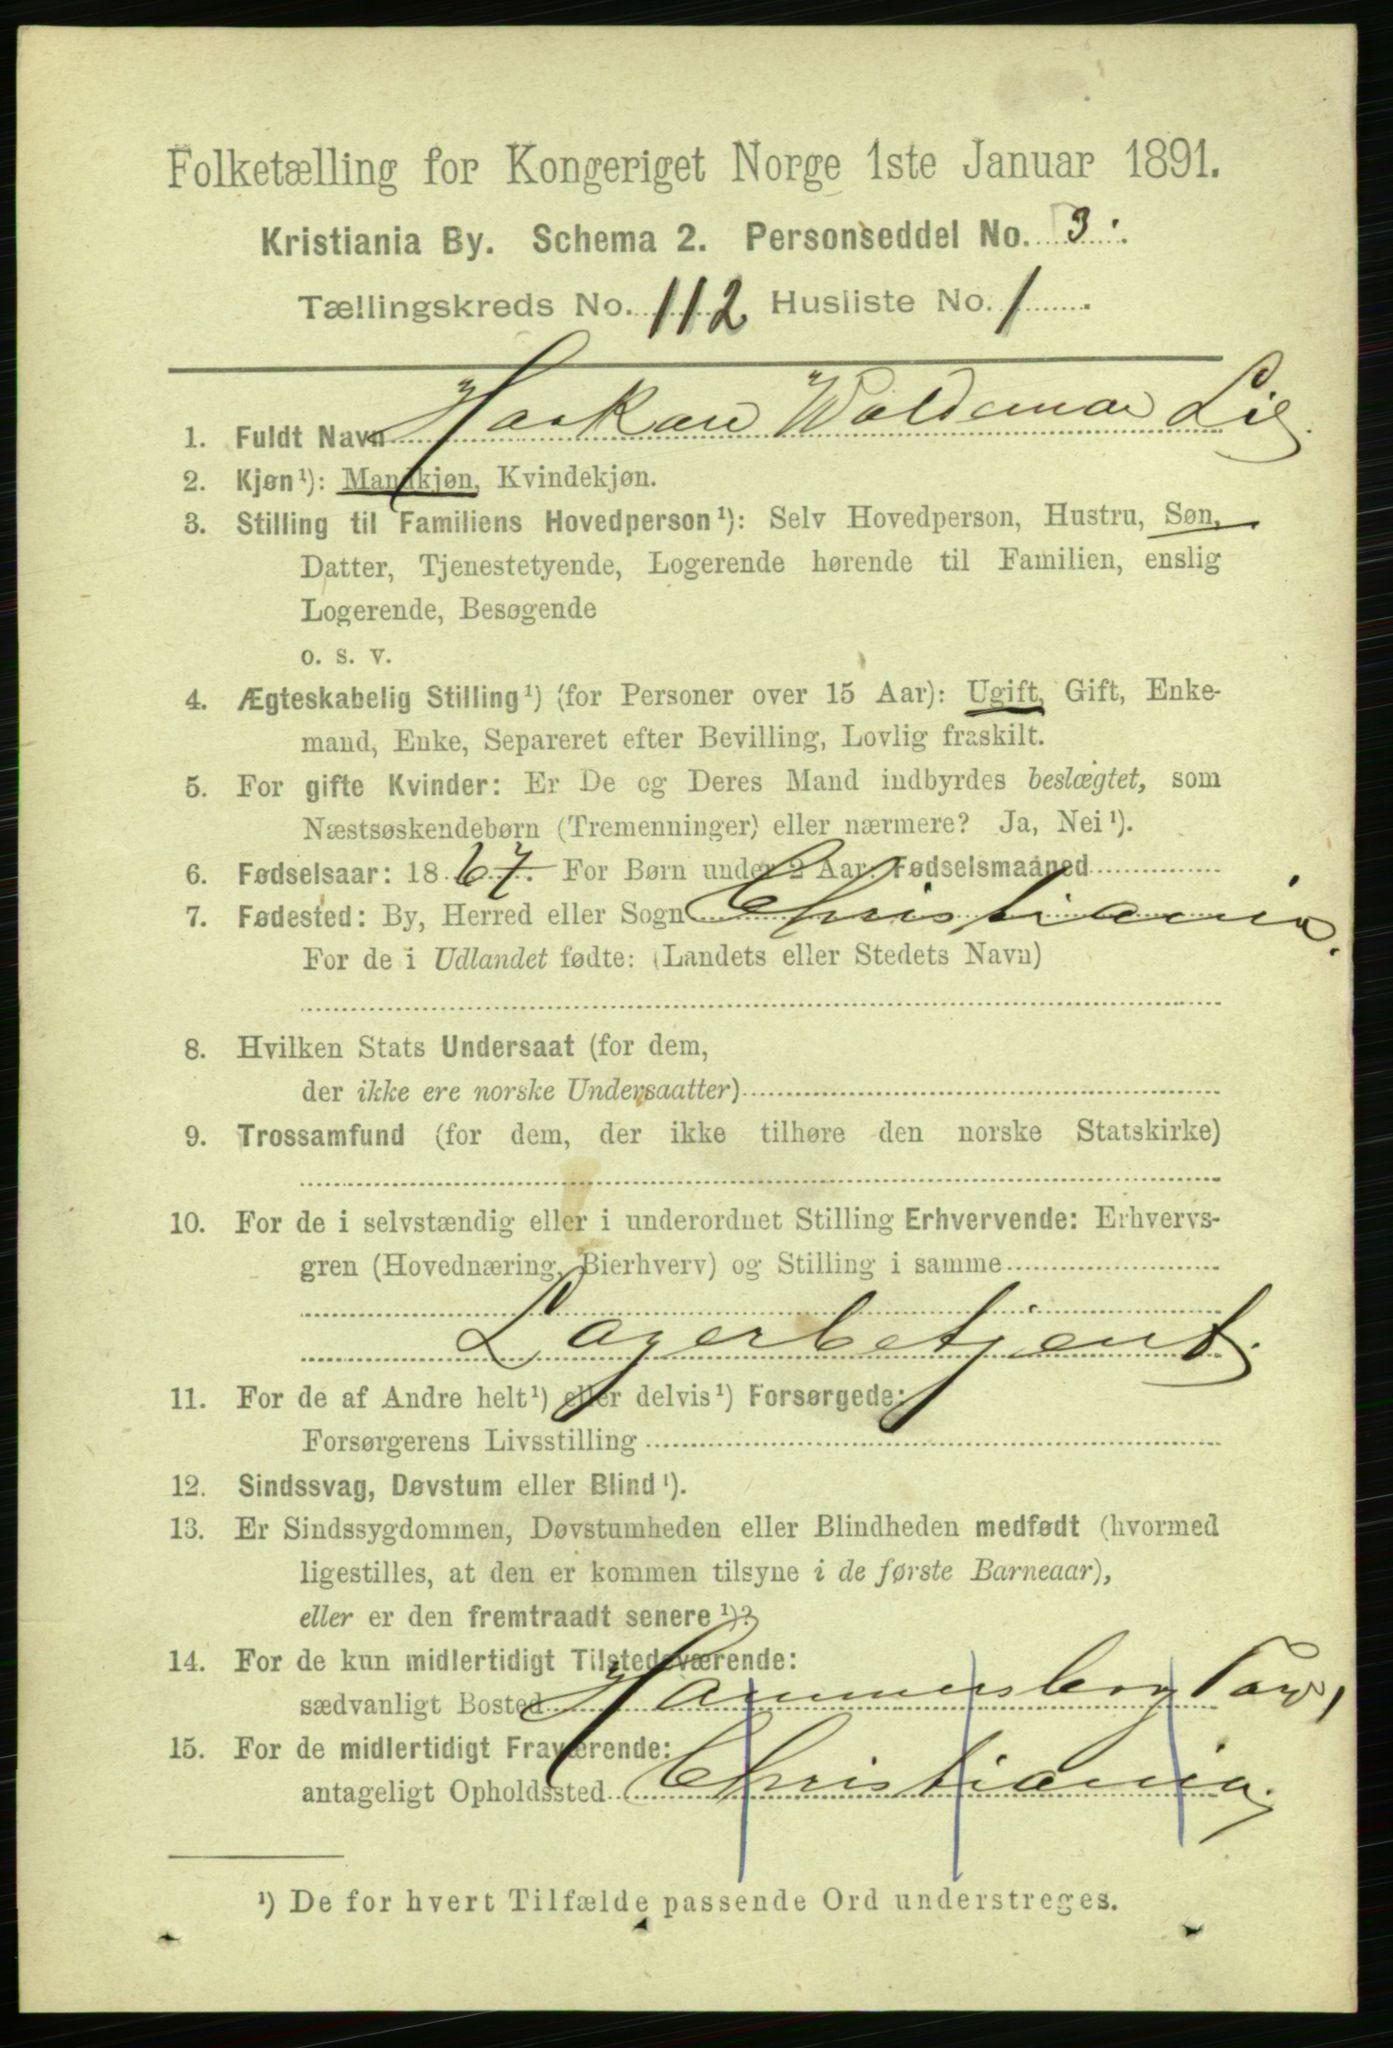 Folketælling for Kongeriget Norge 1ste Januar 1891.
Kristiania By. Schema 2. Personseddel No. 3.
Tællingskreds No. 112 Husliste No. 1.
1. Fuldt Navn Haakan Waldemar Lie.
2. Kjøn¹): Mandkjøn, Kvindekjøn.
3. Stilling til Familiens Hovedperson¹): Selv Hovedperson, Hustru, Søn,
Datter, Tjenestetyende, Logerende hørende til Familien, enslig
Logerende, Besøgende
o. s. v.
4. Ægteskabelig Stilling¹) (for Personer over 15 Aar): Ugift, Gift, Enke-
mand, Enke, Separeret efter Bevilling, Lovlig fraskilt.
5. For gifte Kvinder: Er De og Deres Mand indbyrdes beslægtet, som
Næstsøskendebørn (Tremenninger) eller nærmere? Ja, Nei¹).
6. Fødselsaar: 1867. For Børn under 2 Aar. Fødselsmaaned
7. Fødested: By, Herred eller Sogn Christiania.
For de i Udlandet fødte: (Landets eller Stedets Navn)
8. Hvilken Stats Undersaat (for dem,
der ikke ere norske Undersaatter)
9. Trossamfund (for dem, der ikke tilhøre den norske Statskirke)
10. For de i selvstændig eller i underordnet Stilling Erhvervende: Erhvervs-
gren (Hovednæring, Bierhverv) og Stilling i samme
Lagerbetjent.
11. For de af Andre helt¹) eller delvis¹) Forsørgede:
Forsørgerens Livsstilling
12. Sindssvag, Døvstum eller Blind¹).
13. Er Sindssygdommen, Døvstumheden eller Blindheden medfødt (hvormed
ligestilles, at den er kommen tilsyne i de første Barneaar),
eller er den fremtraadt senere¹)?
14. For de kun midlertidigt Tilstedeværende:
sædvanligt Bosted
15. For de midlertidigt Fraværende:
antageligt Opholdssted Christiania.
¹) De for hvert Tilfælde passende Ord understreges.